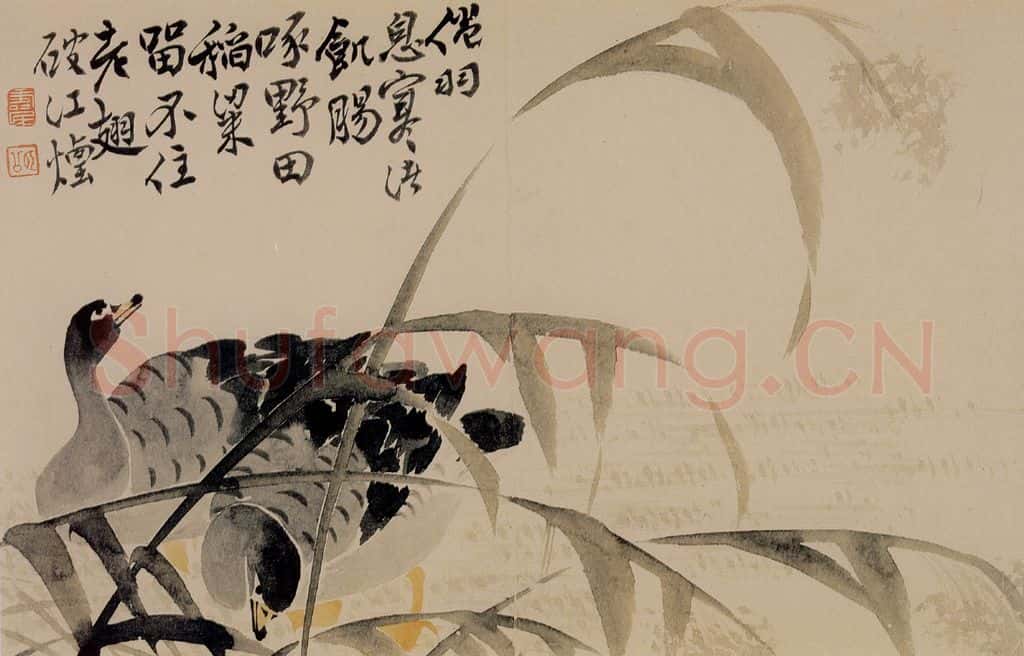 倦羽
息寒渚
飢腸
啄野田
稻粱
留不住
老翅
破江煙
Shufawang.CN